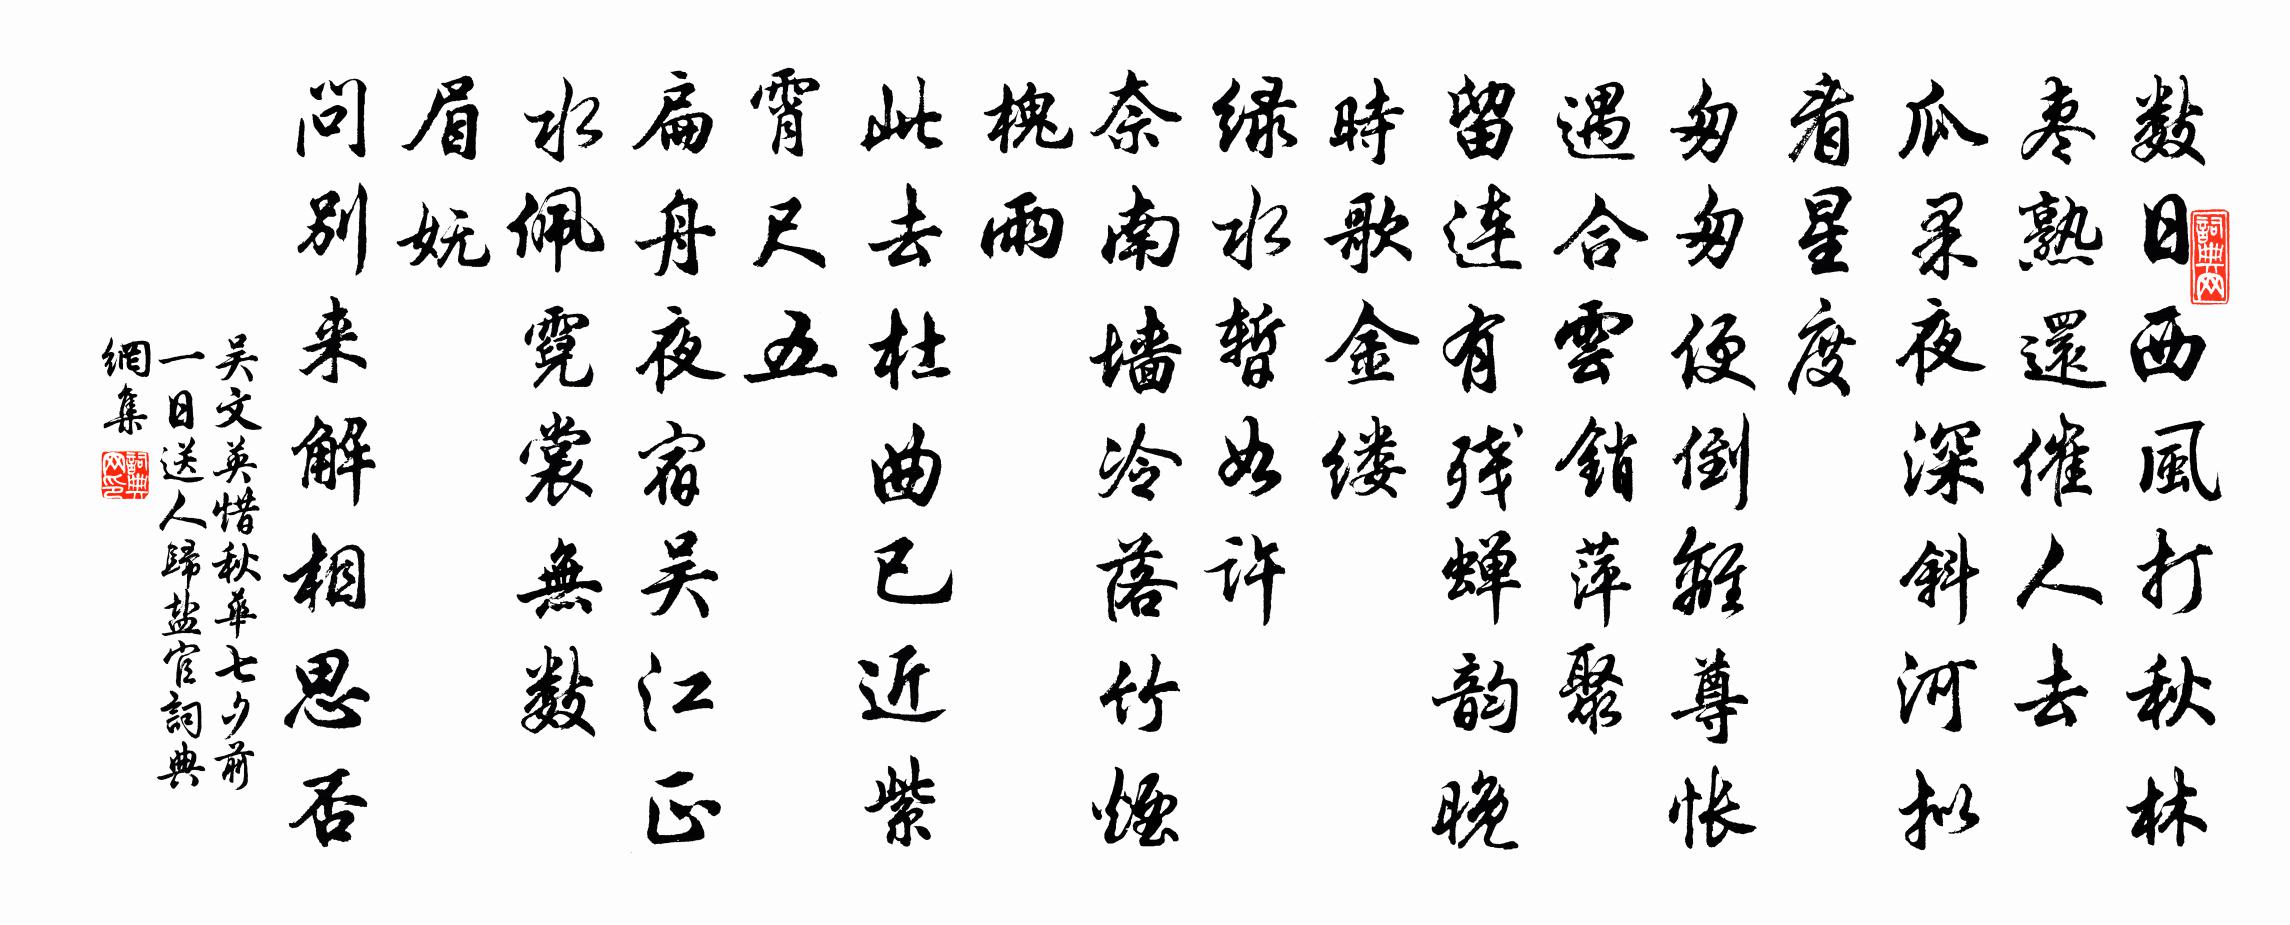 数日西風打秋林
枣熟還催人去
瓜果夜深斜河拟
看星度
匆匆便倒離尊怅
遇合雲銷萍聚
留連有残蝉韵晚
時歌金缕
绿水暫如许
奈南墙冷落竹煙
槐雨
此去杜曲已近紫
霄尺五
扁舟夜宿吴江正
水佩霓裳無数
眉妩
問别来解相思否
吴文英惜秋華七夕前
一日送人歸盐官詞典
網集
詞典网
詞典网印